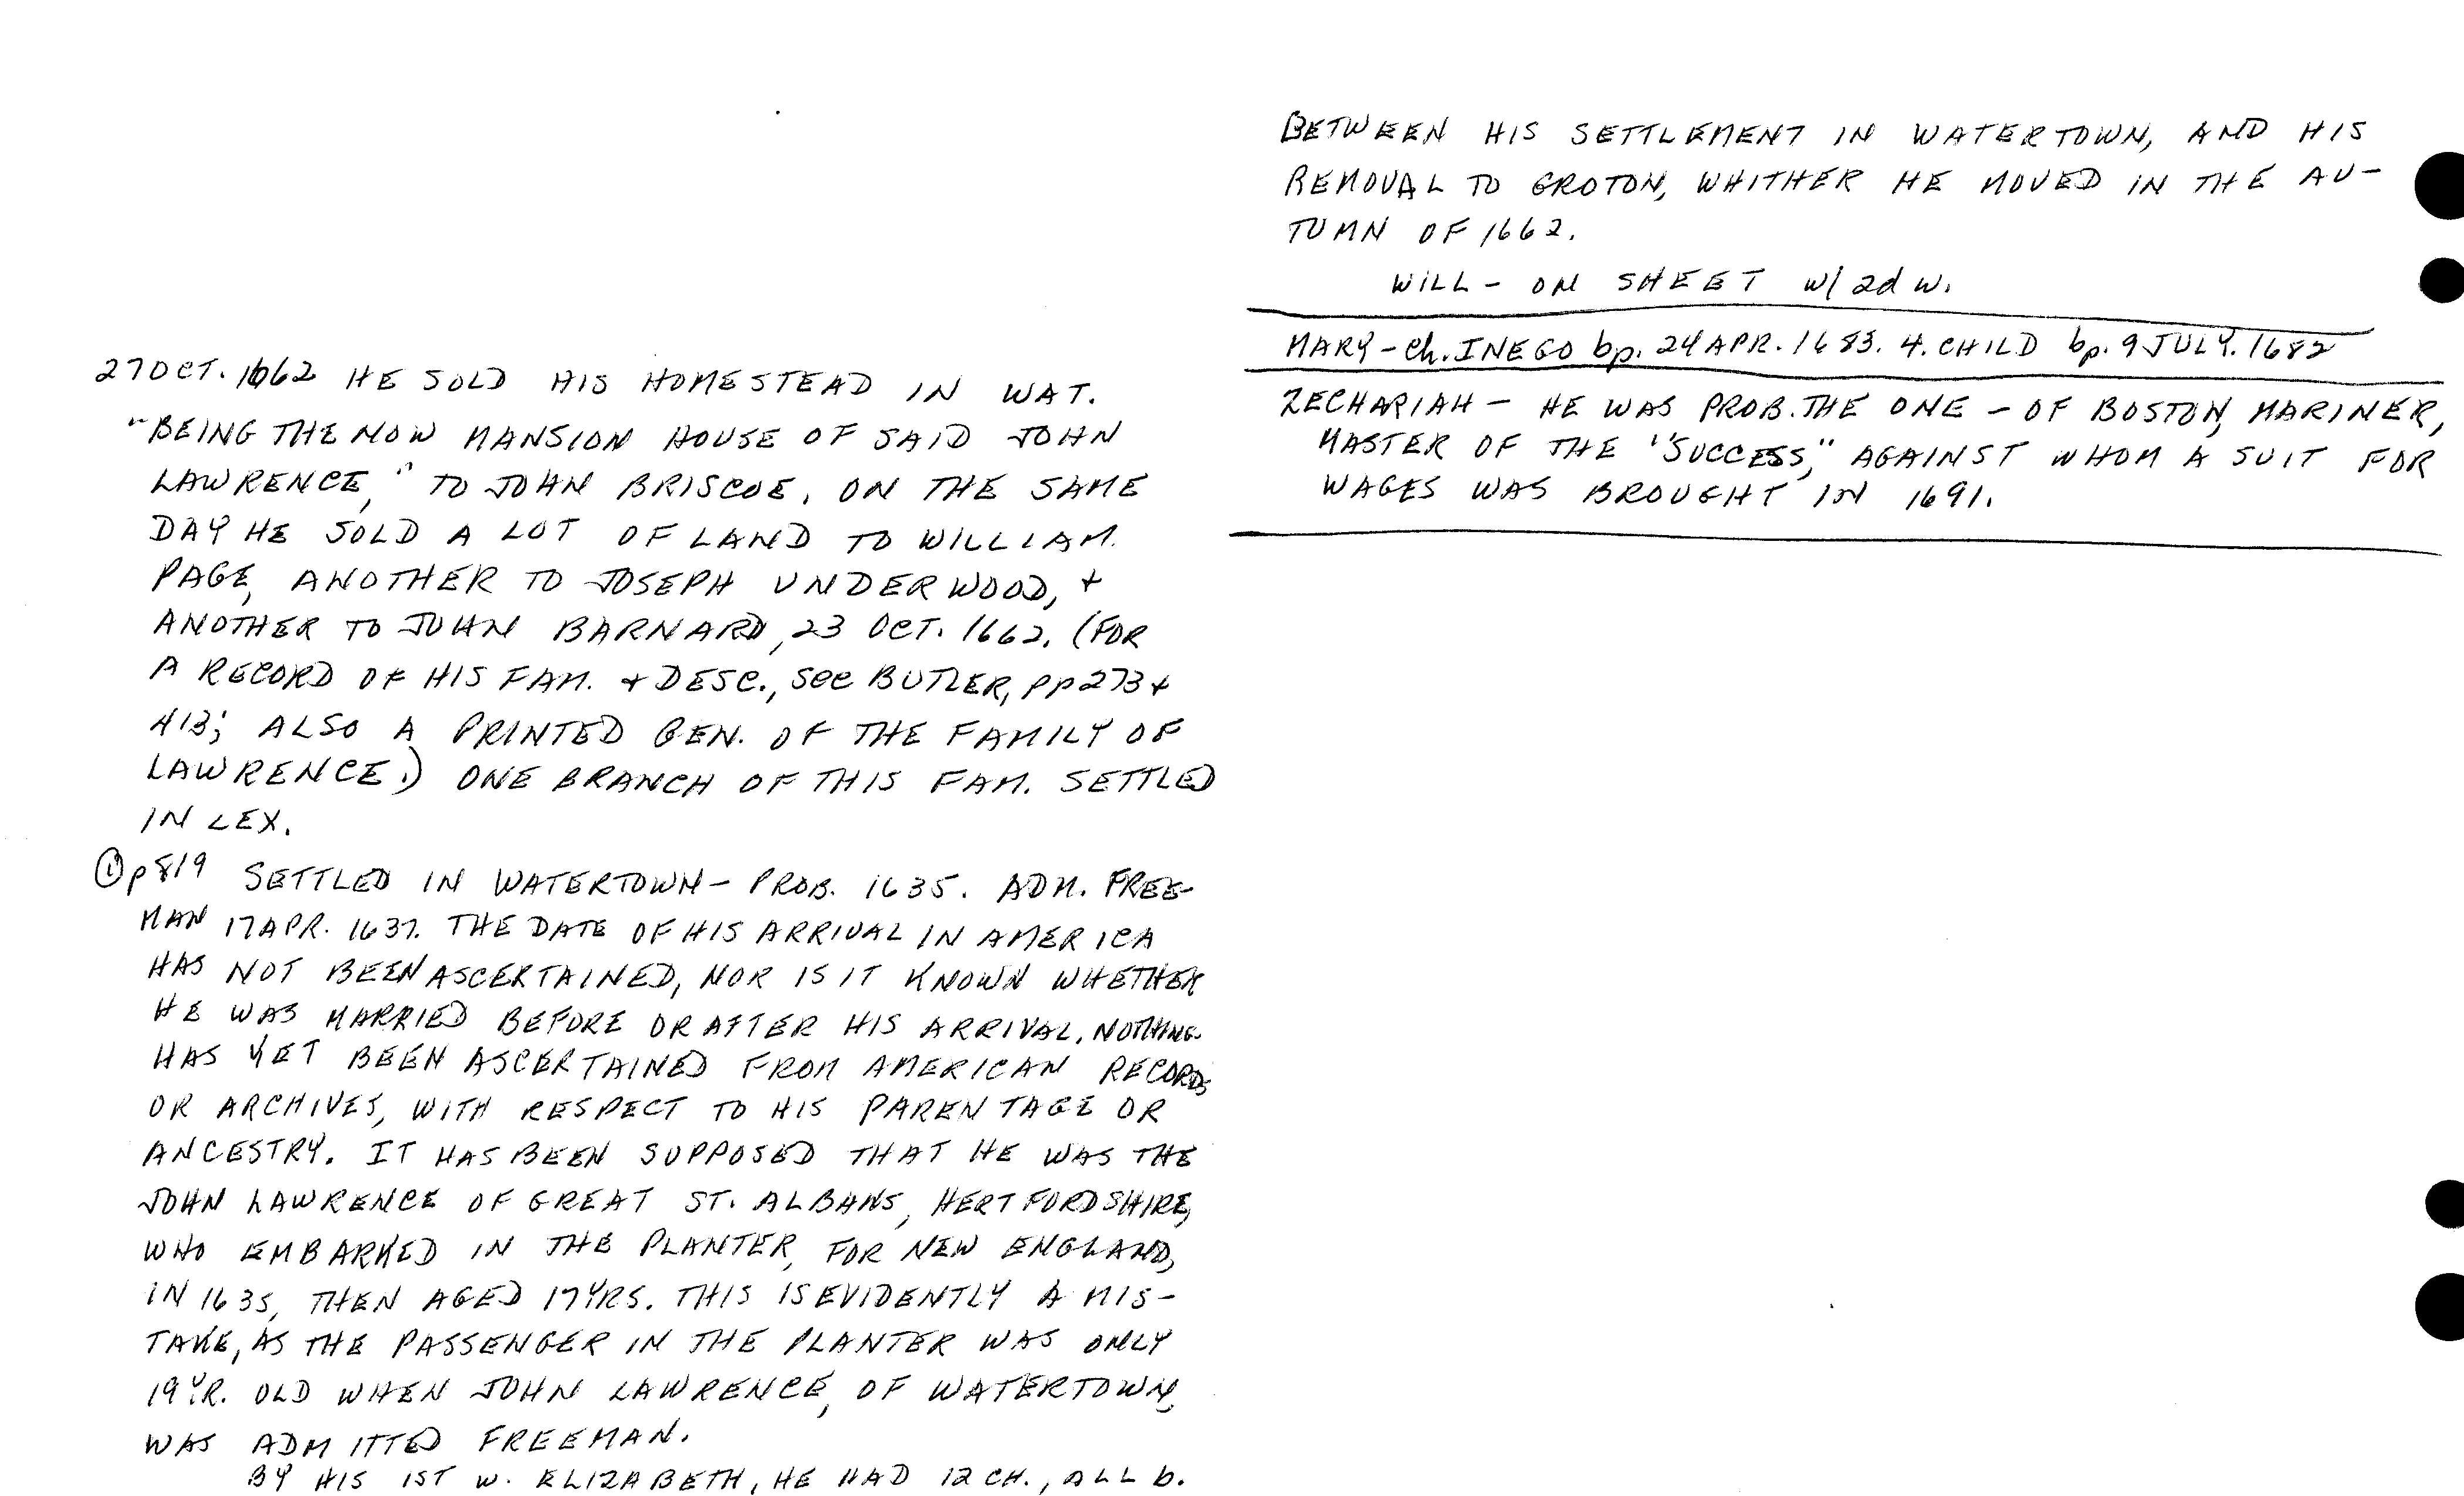 27 OCT. 1662 HE SOLD HIS HOMESTEAD IN WAT.
"BEING THE NOW MANSION HOUSE OF SAID JOHN
LAWRENCE," TO JOHN BRISCOE. ON THE SAME
DAY HE SOLD A LOT OF LAND TO WILLIAM
PAGE, ANOTHER TO JOSEPH UNDERWOOD, +
ANOTHER TO JOHN BARNARD, 23 OCT. 1662. (FOR
A RECORD OF HIS FAM. + DESC., see BUTLER, pp 273 +
413; ALSO A PRINTED GEN. OF THE FAMILY OF
LAWRENCE.) ONE BRANCH OF THIS FAM. SETTLED
IN LEX.
① p 819 SETTLED IN WATERTOWN - PROB. 1635. ADM. FREE-
MAN 17 APR. 1637. THE DATE OF HIS ARRIVAL IN AMERICA
HAS NOT BEEN ASCERTAINED, NOR IS IT KNOWN WHETHER
HE WAS MARRIED BEFORE OR AFTER HIS ARRIVAL. NOTHING
HAS YET BEEN ASCERTAINED FROM AMERICAN RECORDS
OR ARCHIVES, WITH RESPECT TO HIS PARENTAGE OR
ANCESTRY. IT HAS BEEN SUPPOSED THAT HE WAS THE
JOHN LAWRENCE OF GREAT ST. ALBANS, HERTFORDSHIRE,
WHO EMBARKED IN THE PLANTER, FOR NEW ENGLAND,
IN 1635, THEN AGED 17 YRS. THIS IS EVIDENTLY A MIS-
TAKE, AS THE PASSENGER IN THE PLANTER WAS ONLY
19 YR. OLD WHEN JOHN LAWRENCE, OF WATERTOWN,
WAS ADMITTED FREEMAN.
BY HIS 1ST w. ELIZABETH, HE HAD 12 CH., ALL b.
BETWEEN HIS SETTLEMENT IN WATERTOWN, AND HIS
REMOVAL TO GROTON, WHITHER HE MOVED IN THE AU-
TUMN OF 1662.
WILL - ON SHEET w/ 2d w.
MARY - Ch. INEGO bp. 24 APR. 1683. 4. CHILD bp. 9 JULY. 1682
ZECHARIAH - HE WAS PROB. THE ONE - OF BOSTON, MARINER,
MASTER OF THE "SUCCESS," AGAINST WHOM A SUIT FOR
WAGES WAS BROUGHT IN 1691.